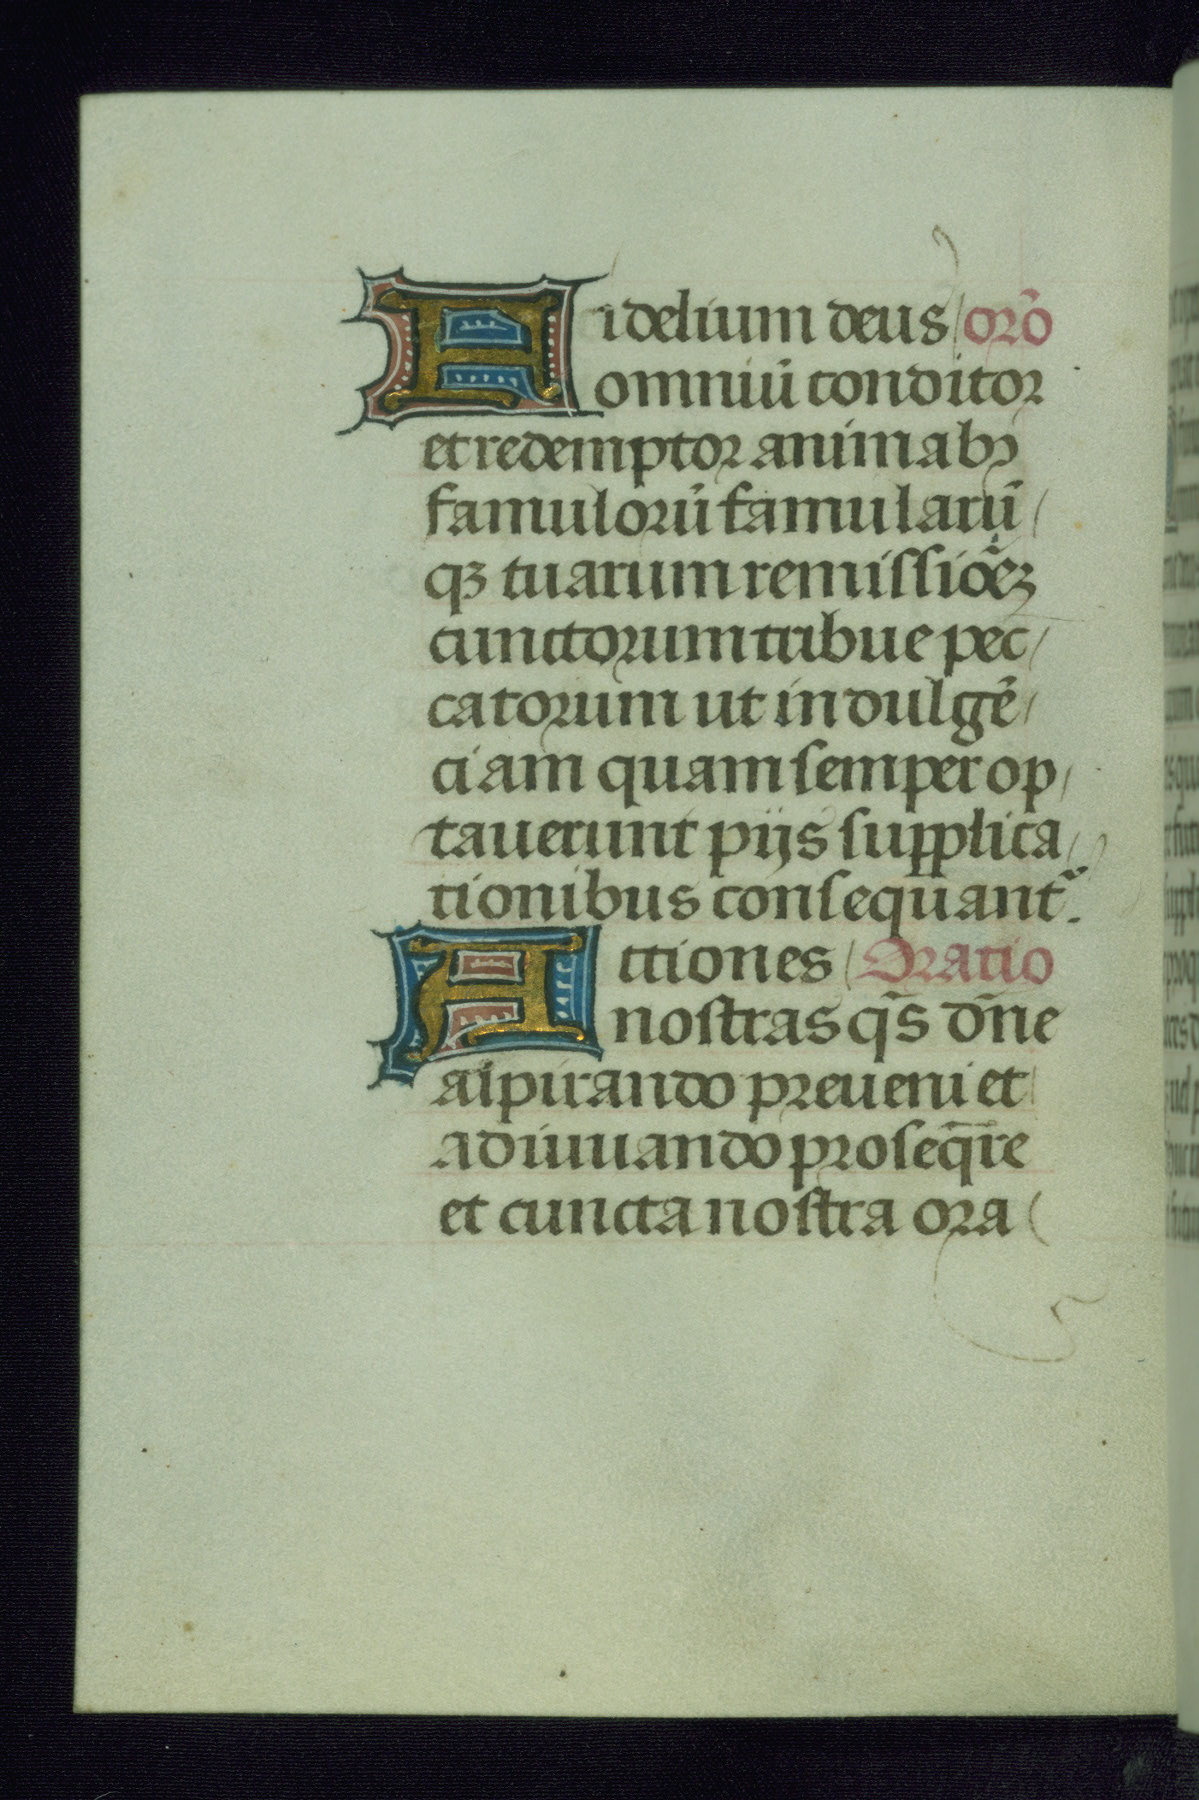 Fidelium deus orō
omniū conditor
et redemptor animabꝫ
famulorū famularū
qꝫ tuarum remissiōeꝫ
cunctorum tribue pec
catorum ut indulgē
ciam quam semper op
tauerunt pijs supplica
tionibus consequant᷑.
Actiones Oratio
nostras q̄s dn̄e
aspirando preueni et
adiuuando proseq̄re
et cuncta nostra ora